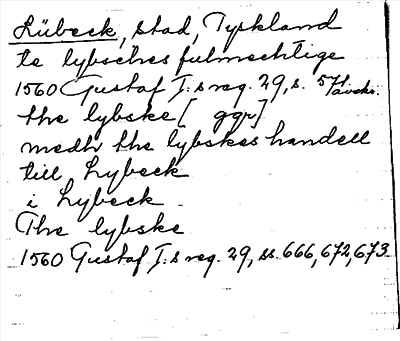 Lübeck, stad, Tyskland
te lybsches fulmechtige
1560 Gustaf I:s reg. 29, s. 571
the lybske [ ggr]
medh the lybskes handell
till Lybeck
i Lybeck
The lybske
1560 Gustaf I:s reg. 29, ss. 666, 672, 673